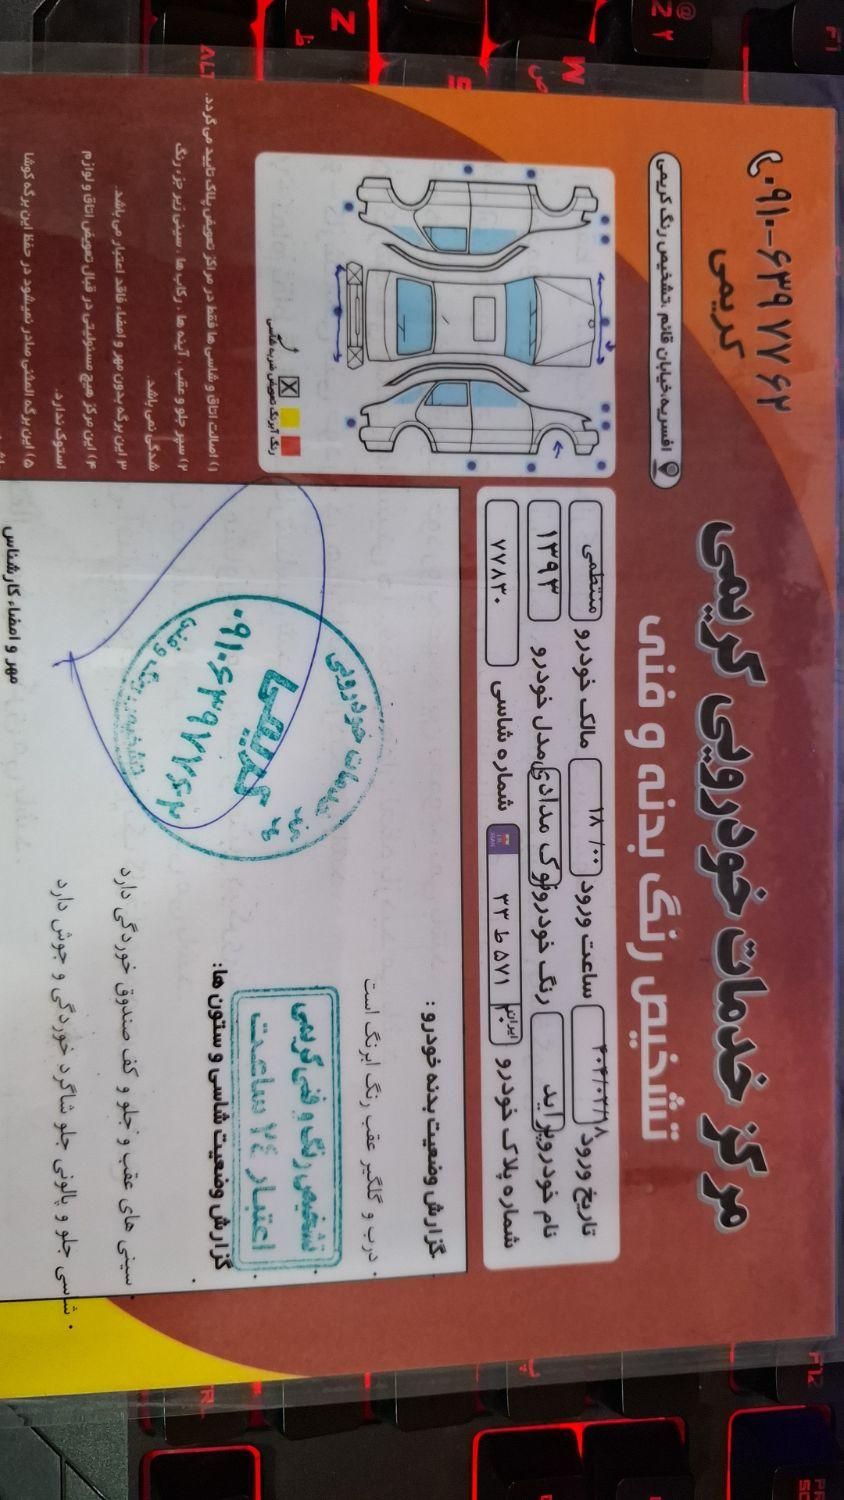 مرکز خدمات خودرویی کریمی
تشخیص رنگ بدنه و فنی
۰۹۱۰-۶۳۹ ۷۷ ۶۲
کریمی
افسریه،خیابان قائم ،تشخیص رنگ کریمی
تاریخ ورود ۴۰۴/۰۲/۱۸ ساعت ورود ۱۸ /۰۰ مالک خودرو منتظمی
نام خودرو پراید رنگ خودرو نوک مدادی مدل خودرو ۱۳۹۳
شماره پلاک خودرو ایران ۲۰ ۵۷۱ ط ۳۳ شماره شاسی ۷۷۸۳۰
رنگ آبرنگ تعویض ضربه شاسی
۱) اصالت اتاق و شاسی ها فقط در مراکز تعویض پلاک تایید می گردد.
۲) سپر جلو و عقب . آینه ها . رکاب ها . سینی زیر جزء رنگ
شدگی نمی باشد.
۳) این برگه بدون مهر و امضاء فاقد اعتبار می باشد
۴) این مرکز هیچ مسئولیتی در قبال تعویض اتاق و لوازم
استوک ندارد.
۵) این برگه المثنی صادر نمیشود در حفظ این برگه کوشا
گزارش وضعیت بدنه خودرو :
. درب و گلگیر عقب رنگ ابرنگ است
تشخیص رنگ و فنی کریمی
اعتبار ۲۴ ساعت
گزارش وضعیت شاسی و ستون ها:
. سینی های عقب و جلو و کف صندوق خوردگی دارد
. شاسی جلو و پالونی جلو شاگرد خوردگی و جوش دارد
خدمات خودرویی
کریمی
۰۹۱۰۶۳۹۷۷۶۲
تشخیص رنگ و فنی
مهر و امضاء کارشناس
F1
@
2 ۲
W
ص
Z
ظ
ALT
F12